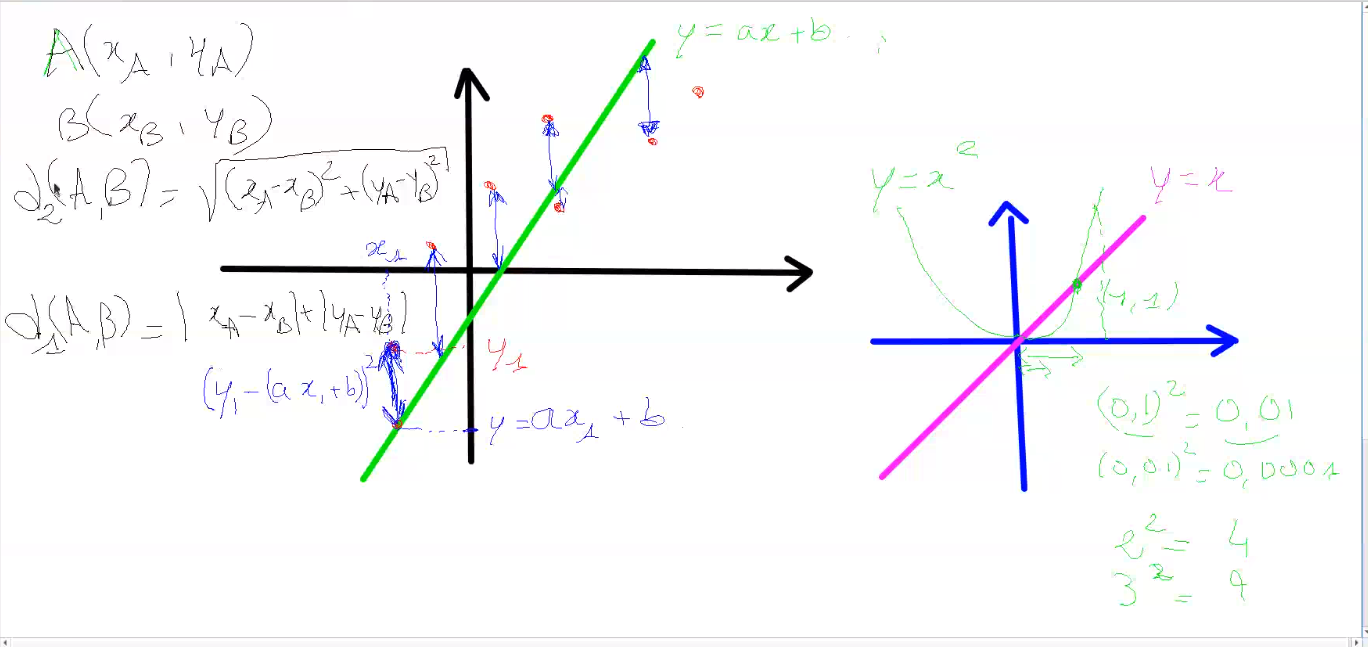 A(x_A, y_A)
B(x_B, y_B)
d_2(A,B) = √((x_A-x_B)^2+(y_A-y_B)^2)
d_1(A,B) = |x_A-x_B|+|y_A-y_B|
(y_1-(ax_1+b))^2
x_1
y_1
y=ax_1+b
y=ax+b
y=x^2
y=x
(1,1)
(0,1)^2=0,01
(0,01)^2=0,0001
2^2= 4
3^2= 9